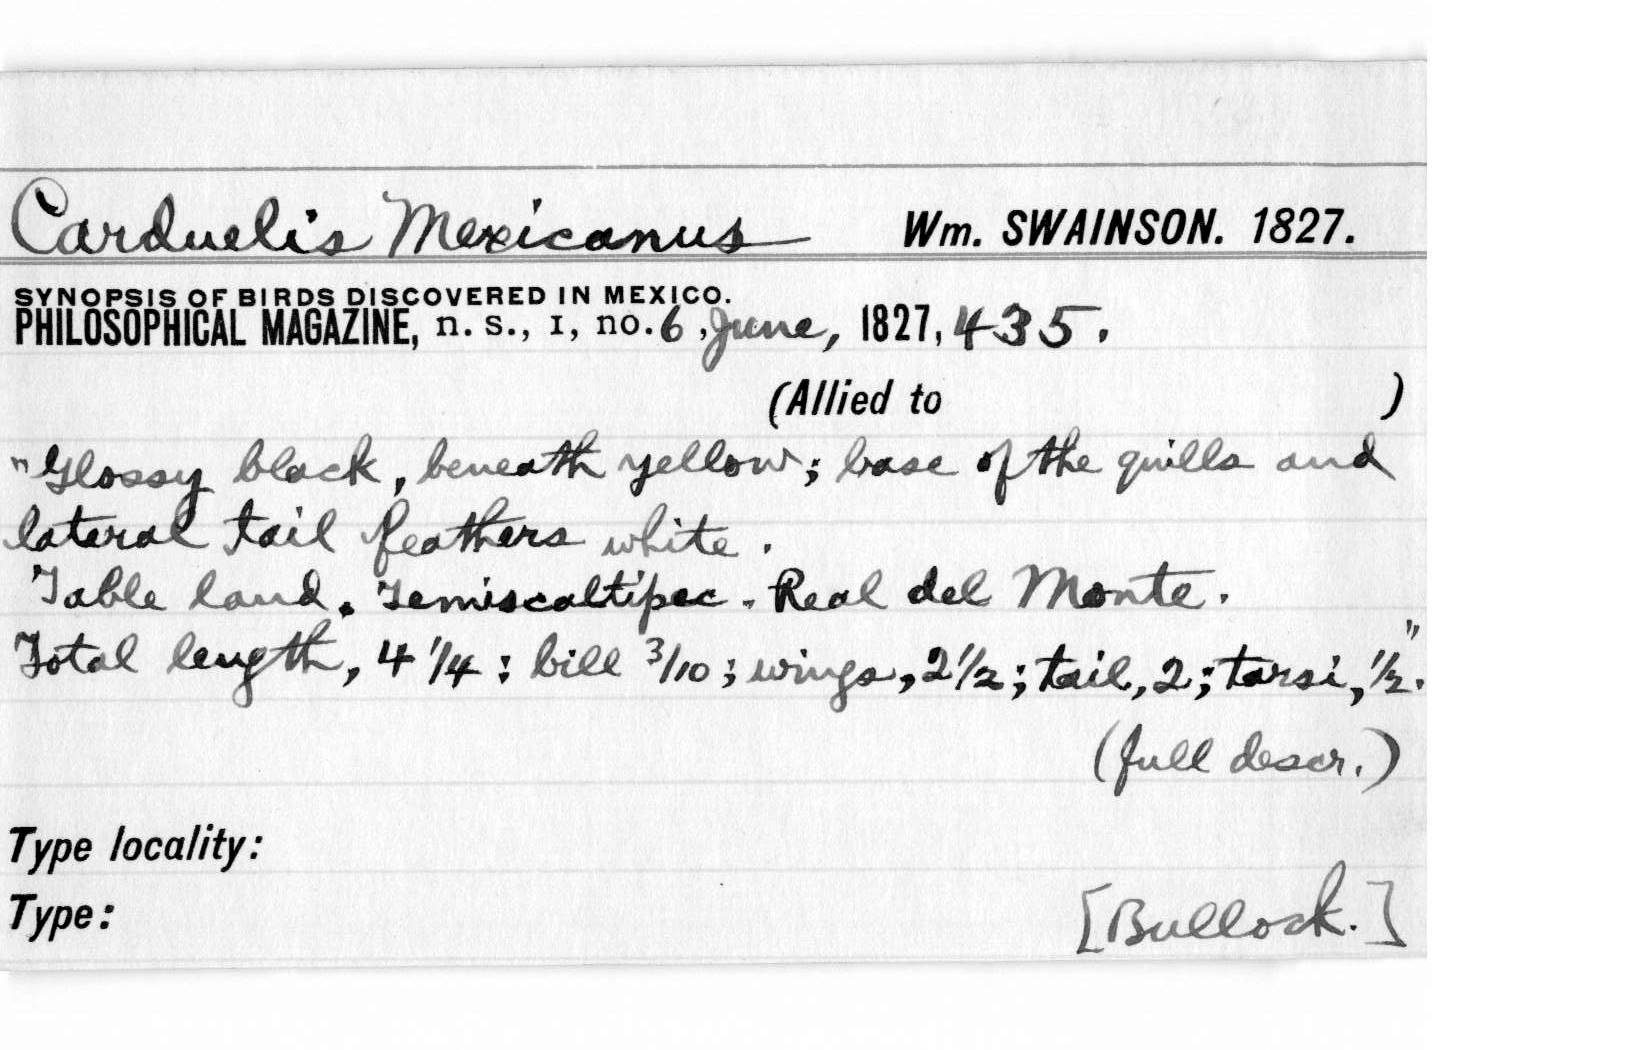 Carduelis Mexicanus Wm. SWAINSON. 1827.
SYNOPSIS OF BIRDS DISCOVERED IN MEXICO.
PHILOSOPHICAL MAGAZINE, n. s., I, no. 6, June, 1827, 435.
(Allied to )
"Glossy black, beneath yellow; base of the quills and
lateral tail feathers white.
Table land. Temiscaltipec. Real del Monte.
Total length, 4 1/4; bill 3/10; wings, 2 1/2; tail, 2; tarsi, 1/2."
(full descr.)
Type locality:
Type: [Bullock.]